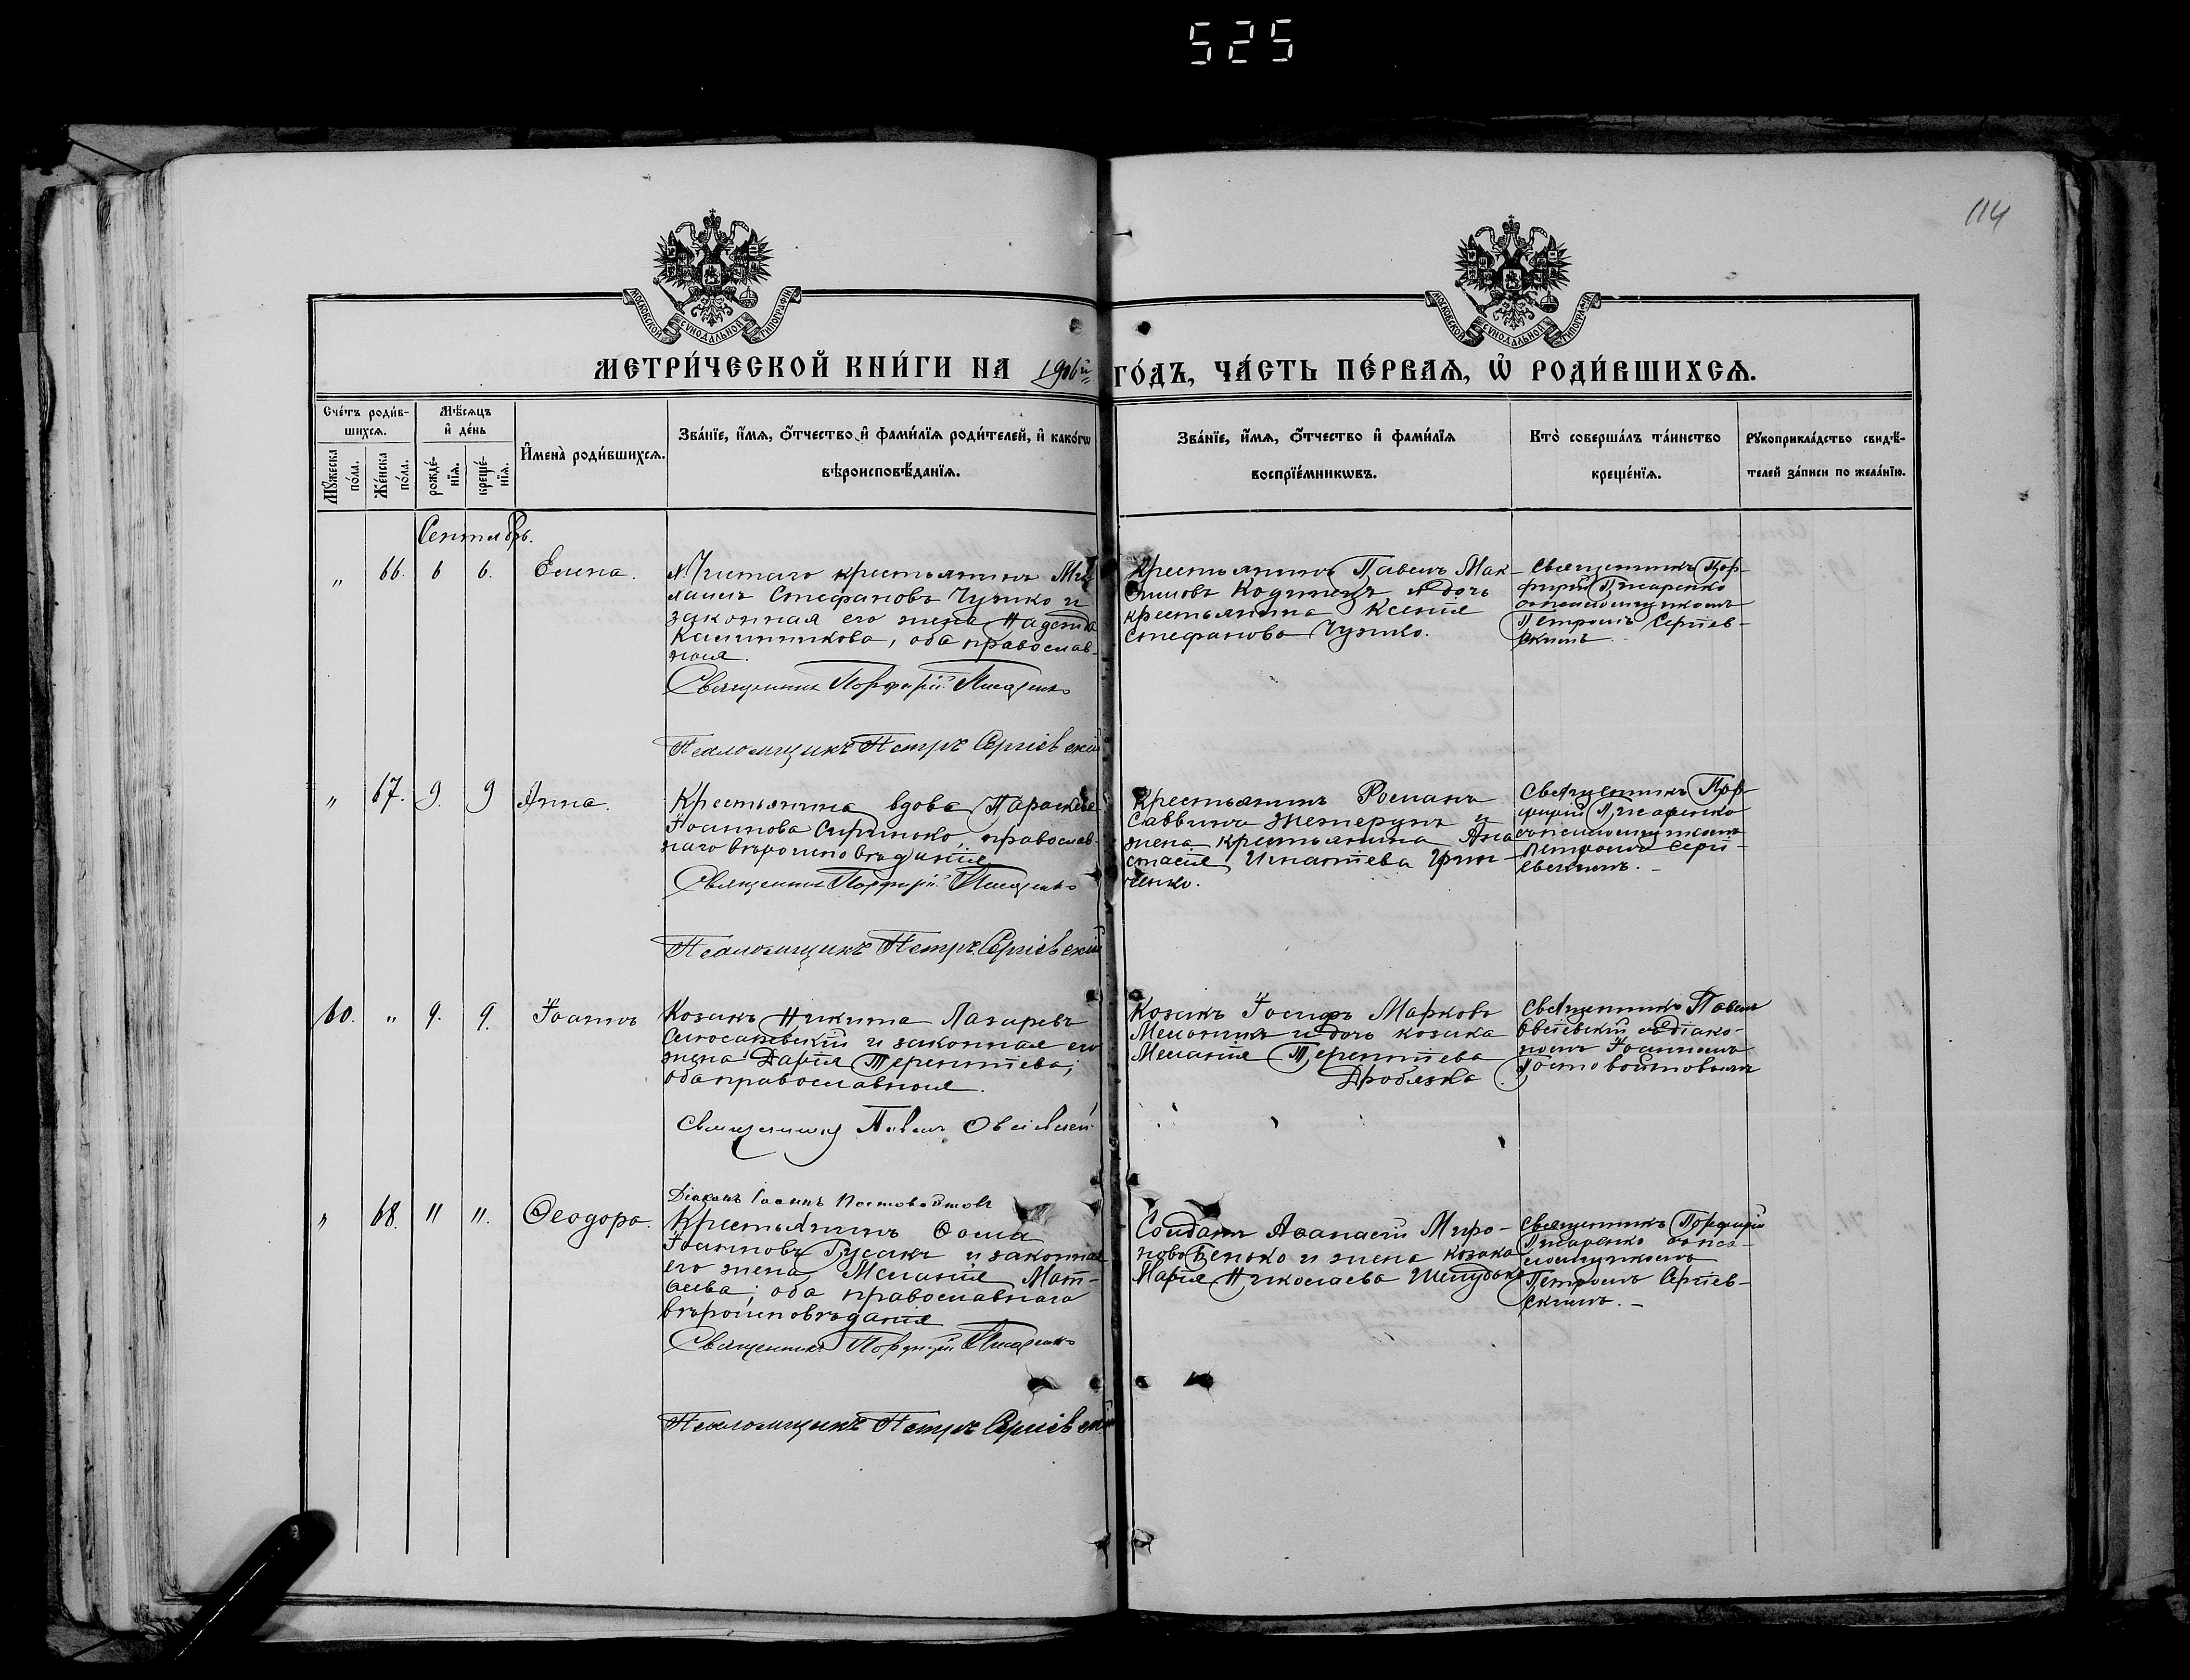 525
114
МОСКОВСКОЙ СѴНОДАЛЬНОЙ ТИПОГРАФІИ
МОСКОВСКОЙ СѴНОДАЛЬНОЙ ТИПОГРАФІИ
МЕТРИ́ЧЕСКОЙ КНИ́ГИ НА 1906й ГО́ДЪ, ЧА́СТЬ ПЕ́РВАѦ, Ѡ҆ РОДИ́ВШИХСѦ.
Сче́тъ роди́в-
шихсѧ.
Мꙋ́жеска по́ла.
Же́нска по́ла.
Мѣ́сѧцъ
и҆ де́нь
рожде́-
нїѧ.
креще́-
нїѧ.
И҆мена̀ роди́вшихсѧ.
Зва́нїе, и҆́мѧ, ѻ҆́тчество и҆ фами́лїѧ роди́телей, и҆ како́гѡ
вѣроисповѣ́данїѧ.
Зва́нїе, и҆́мѧ, ѻ҆́тчество и҆ фами́лїѧ
воспрїе́мникѡвъ.
Кто̀ соверша́лъ та́инство
креще́нїѧ.
Рꙋкоприкла́дство свидѣ́-
телей за́писи по жела́нїю.
Сентябрь.
„ 66. 6 6. Елена.
крестьянинъ Ми-
хаилъ Стефановъ Чупко и
законная его жена Надежда
Калинникова, оба православ-
ныя.
Священникъ Порфирій Писаренко
Псаломщикъ Петръ Сергіевскій
Крестьянинъ Павелъ Мак-
симовъ и дочь
крестьянина Ксенія
Стефанова Чупко.
Священникъ Пор-
фирій Писаренко
съ псаломщикомъ
Петромъ Сергіев-
скимъ
„ 67. 9. 9 Анна.
Крестьянина вдова Параскева
Іоаннова православ-
наго вѣроисповѣданія
Священникъ Порфирій Писаренко
Псаломщикъ Петръ Сергіевскій
Крестьянинъ Романъ
Саввинъ и
жена крестьянина Ана
стасія Игнатіева Грин-
ченко.
Священникъ Пор-
фирій Писаренко
съ псаломщикомъ
Петромъ Сергі-
евскимъ. –
60. „ 9. 9. Іоаннъ
Козакъ Никита Лазаревъ
и законная его
жена Дарія Терентіева,
оба православныя.
Священникъ Павелъ Овсіевскій
Діаконъ Іоаннъ Постовойтовъ
Козакъ Іосифъ Марковъ
Мельникъ и дочь козака
Меланія Терентіева
Дробязка.
Священникъ Павелъ
Овсіевскій съ діако-
номъ Іоанномъ
Постовойтовымъ
„ 68. 11 11. Ѳеодора.
Крестьянинъ Ѳома
Іоанновъ Гусакъ и законная
его жена Меланія Мат-
ѳеева, оба православнаго
вѣроисповѣданія
Священникъ Порфирій Писаренко
Псаломщикъ Петръ Сергіевскій
Солдатъ Аѳанасій Миро-
новъ Бенько и жена козака
Марія Николаева
Священникъ Порфирій
Писаренко съ пса-
ломщикомъ
Петромъ Сергіев-
скимъ. –